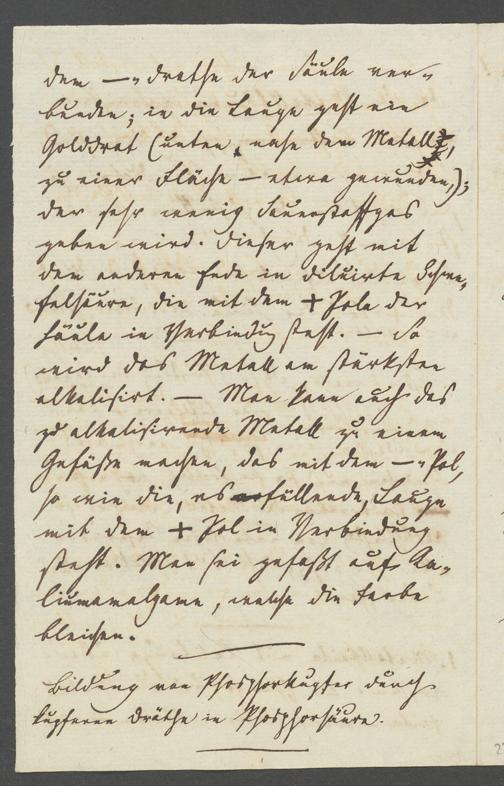 dem —„drathe der Säule ver„
bunden; in die Lauge geht ein
Golddrat (unten, nahe dem Metall,
zu einer Fläche — etwa gewunden,);
der sehr wenig Sauerstoffgas
geben wird. Dieser geht mit
dem anderen Ende in diluirte Schwe„
felsäure, die mit dem + Pole der
Säule in Verbindug steht. — So
wird das Metall am stärksten
alkalisirt. — Man kann auch das
zu alkalisirende Metall zu einem
Gefäße machen, das mit dem —„Pol,
so wie die, es erfüllende, Lauge
mit dem + Pol in Verbindung
steht. Man sei gefaßt auf Ka„
liumamalgame, welche die Farbe
bleichen.
Bildung von Phosphorkupfer durch
kupferne Dräthe in Phosphorsäure.